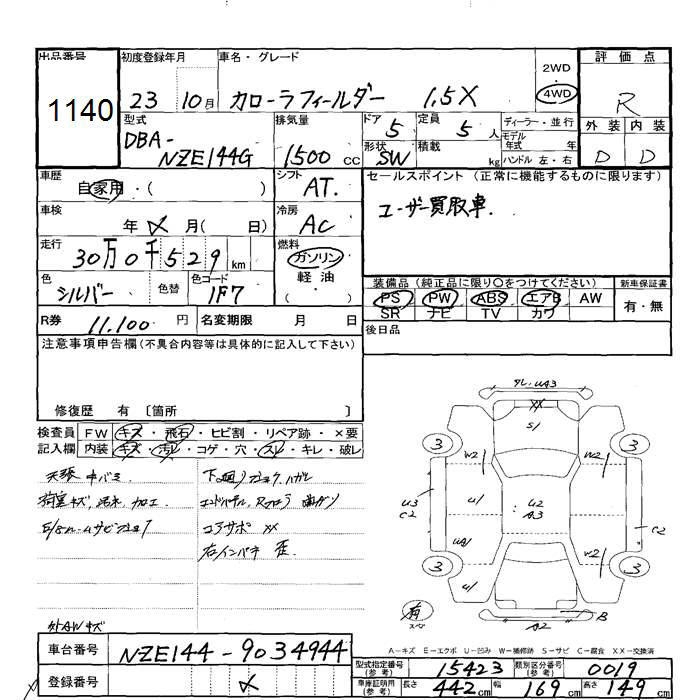 出品番号
1140
初度登録年月
23 10月
車名・グレード
カローラフィールダー 1.5X
2WD
4WD
評価点
R
外装 内装
D D
型式
DBA-
NZE144G
排気量
1500 cc
ドア 5
定員 5 人
形状 SW
積載 kg
ディーラー・並行
モデル
年式 年
ハンドル 左・右
車歴
自家用・( )
シフト
AT.
セールスポイント (正常に機能するものに限ります)
ユーザー買取車.
車検
年 月( 日)
冷房
AC
走行
30万0千529 km
燃料
ガソリン
軽油
色
シルバー
色替
色コード
1F7
装備品 (純正品に限り○をつけてください)
新車保証書
PS PW ABS エアB AW
SR ナビ TV カワ
有・無
R券 11.100 円
名変期限 月 日
後日品
注意事項申告欄(不具合内容等は具体的に記入して下さい)
修復歴 有 〔箇所 〕
検査員
記入欄
FW キズ・飛石・ヒビ割・リペア跡・×要
内装 キズ・汚レ・コゲ・穴・スレ・キレ・破レ
荷室キズ,汚れ,加工
コアサポ XX
右インパネ
外AWキズ
タレ.UA3
XX
S/
3
3
3
3
W2
W2
W2
U3
C2
U/
U2
A3
UA/
U/
C2
B
A2
有
スペア
A-キズ E-エクボ U-凹み W-補修跡 S-サビ C-腐食 XX-交換済
車台番号
NZE144-9034944
登録番号
型式指定番号
(参考)
15423
類別区分番号
(参考)
0019
車庫証明用
(参考)
長さ 442 cm 幅 169 cm 高さ 149 cm